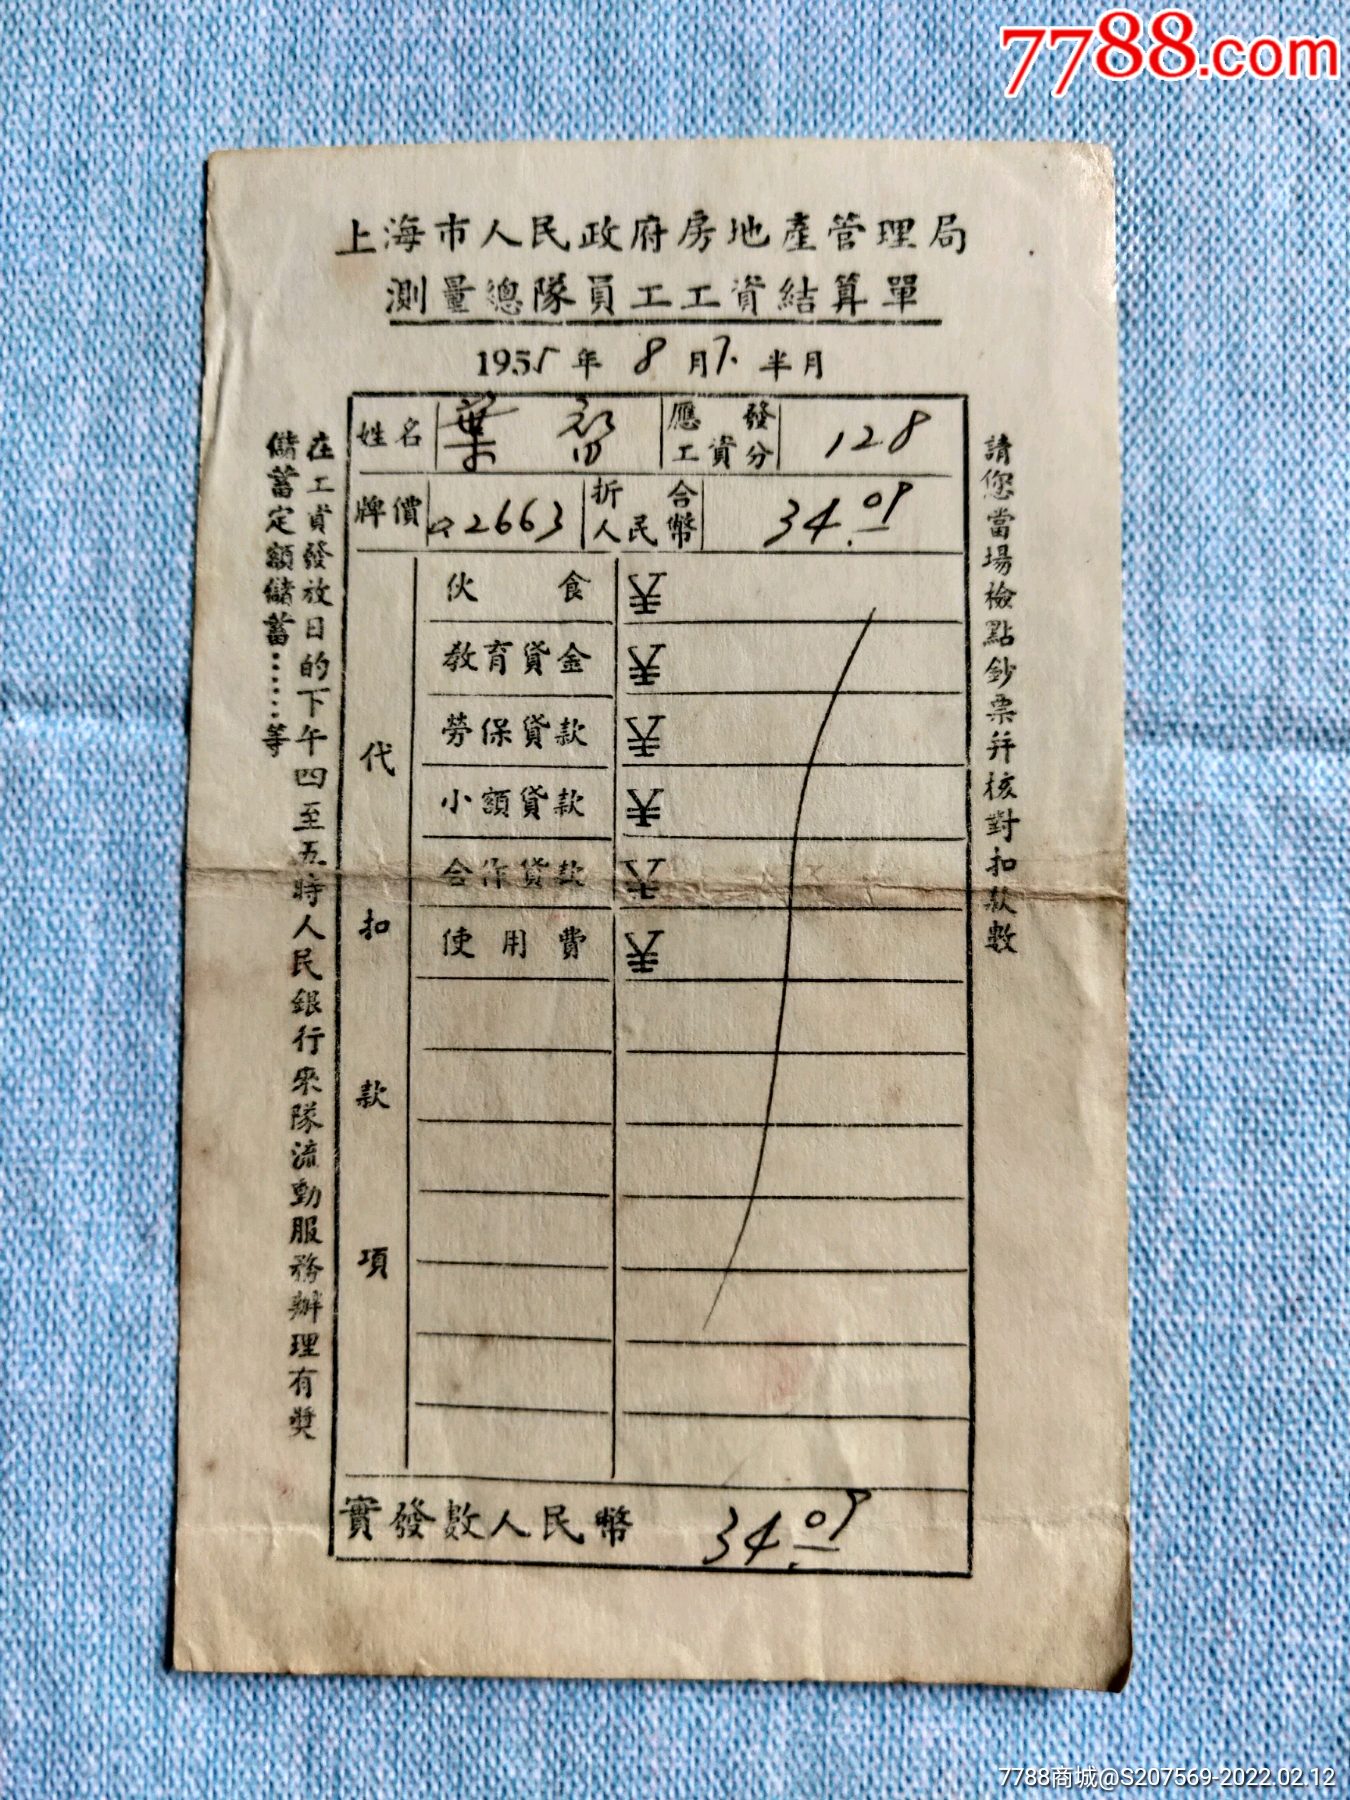 7788.com
上海市人民政府房地產管理局
測量總隊員工工資結算單
1955年 8月下半月
姓名 葉 應發工資分 128
牌價 0.2663 折合人民幣 34.09
代扣款項
伙食 ¥
教育貸金 ¥
勞保貸款 ¥
小額貸款 ¥
合作貸款 ¥
使用費 ¥
實發數人民幣 34.09
請您當場檢點鈔票并核對扣款數
在工資發放日的下午四至五時人民銀行來隊流動服務辦理有獎
儲蓄定額儲蓄……等
7788商城@S207569-2022.02.12